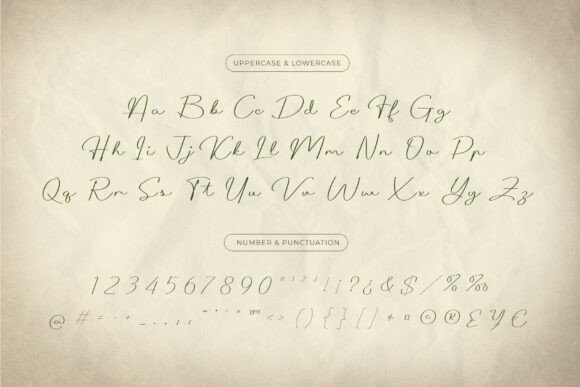 UPPERCASE & LOWERCASE
Aa Bb Cc Dd Ee Ff Gg
Hh Ii Jj Kk Ll Mm Nn Oo Pp
Qq Rr Ss Tt Uu Vv Ww Xx Yy Zz
NUMBER & PUNCTUATION
1 2 3 4 5 6 7 8 9 0 ! ¡ ? ¿ & $ / % ‰
@ # = - + _ . , : ; < > ( ) { } [ ] © ® £ ¥ €